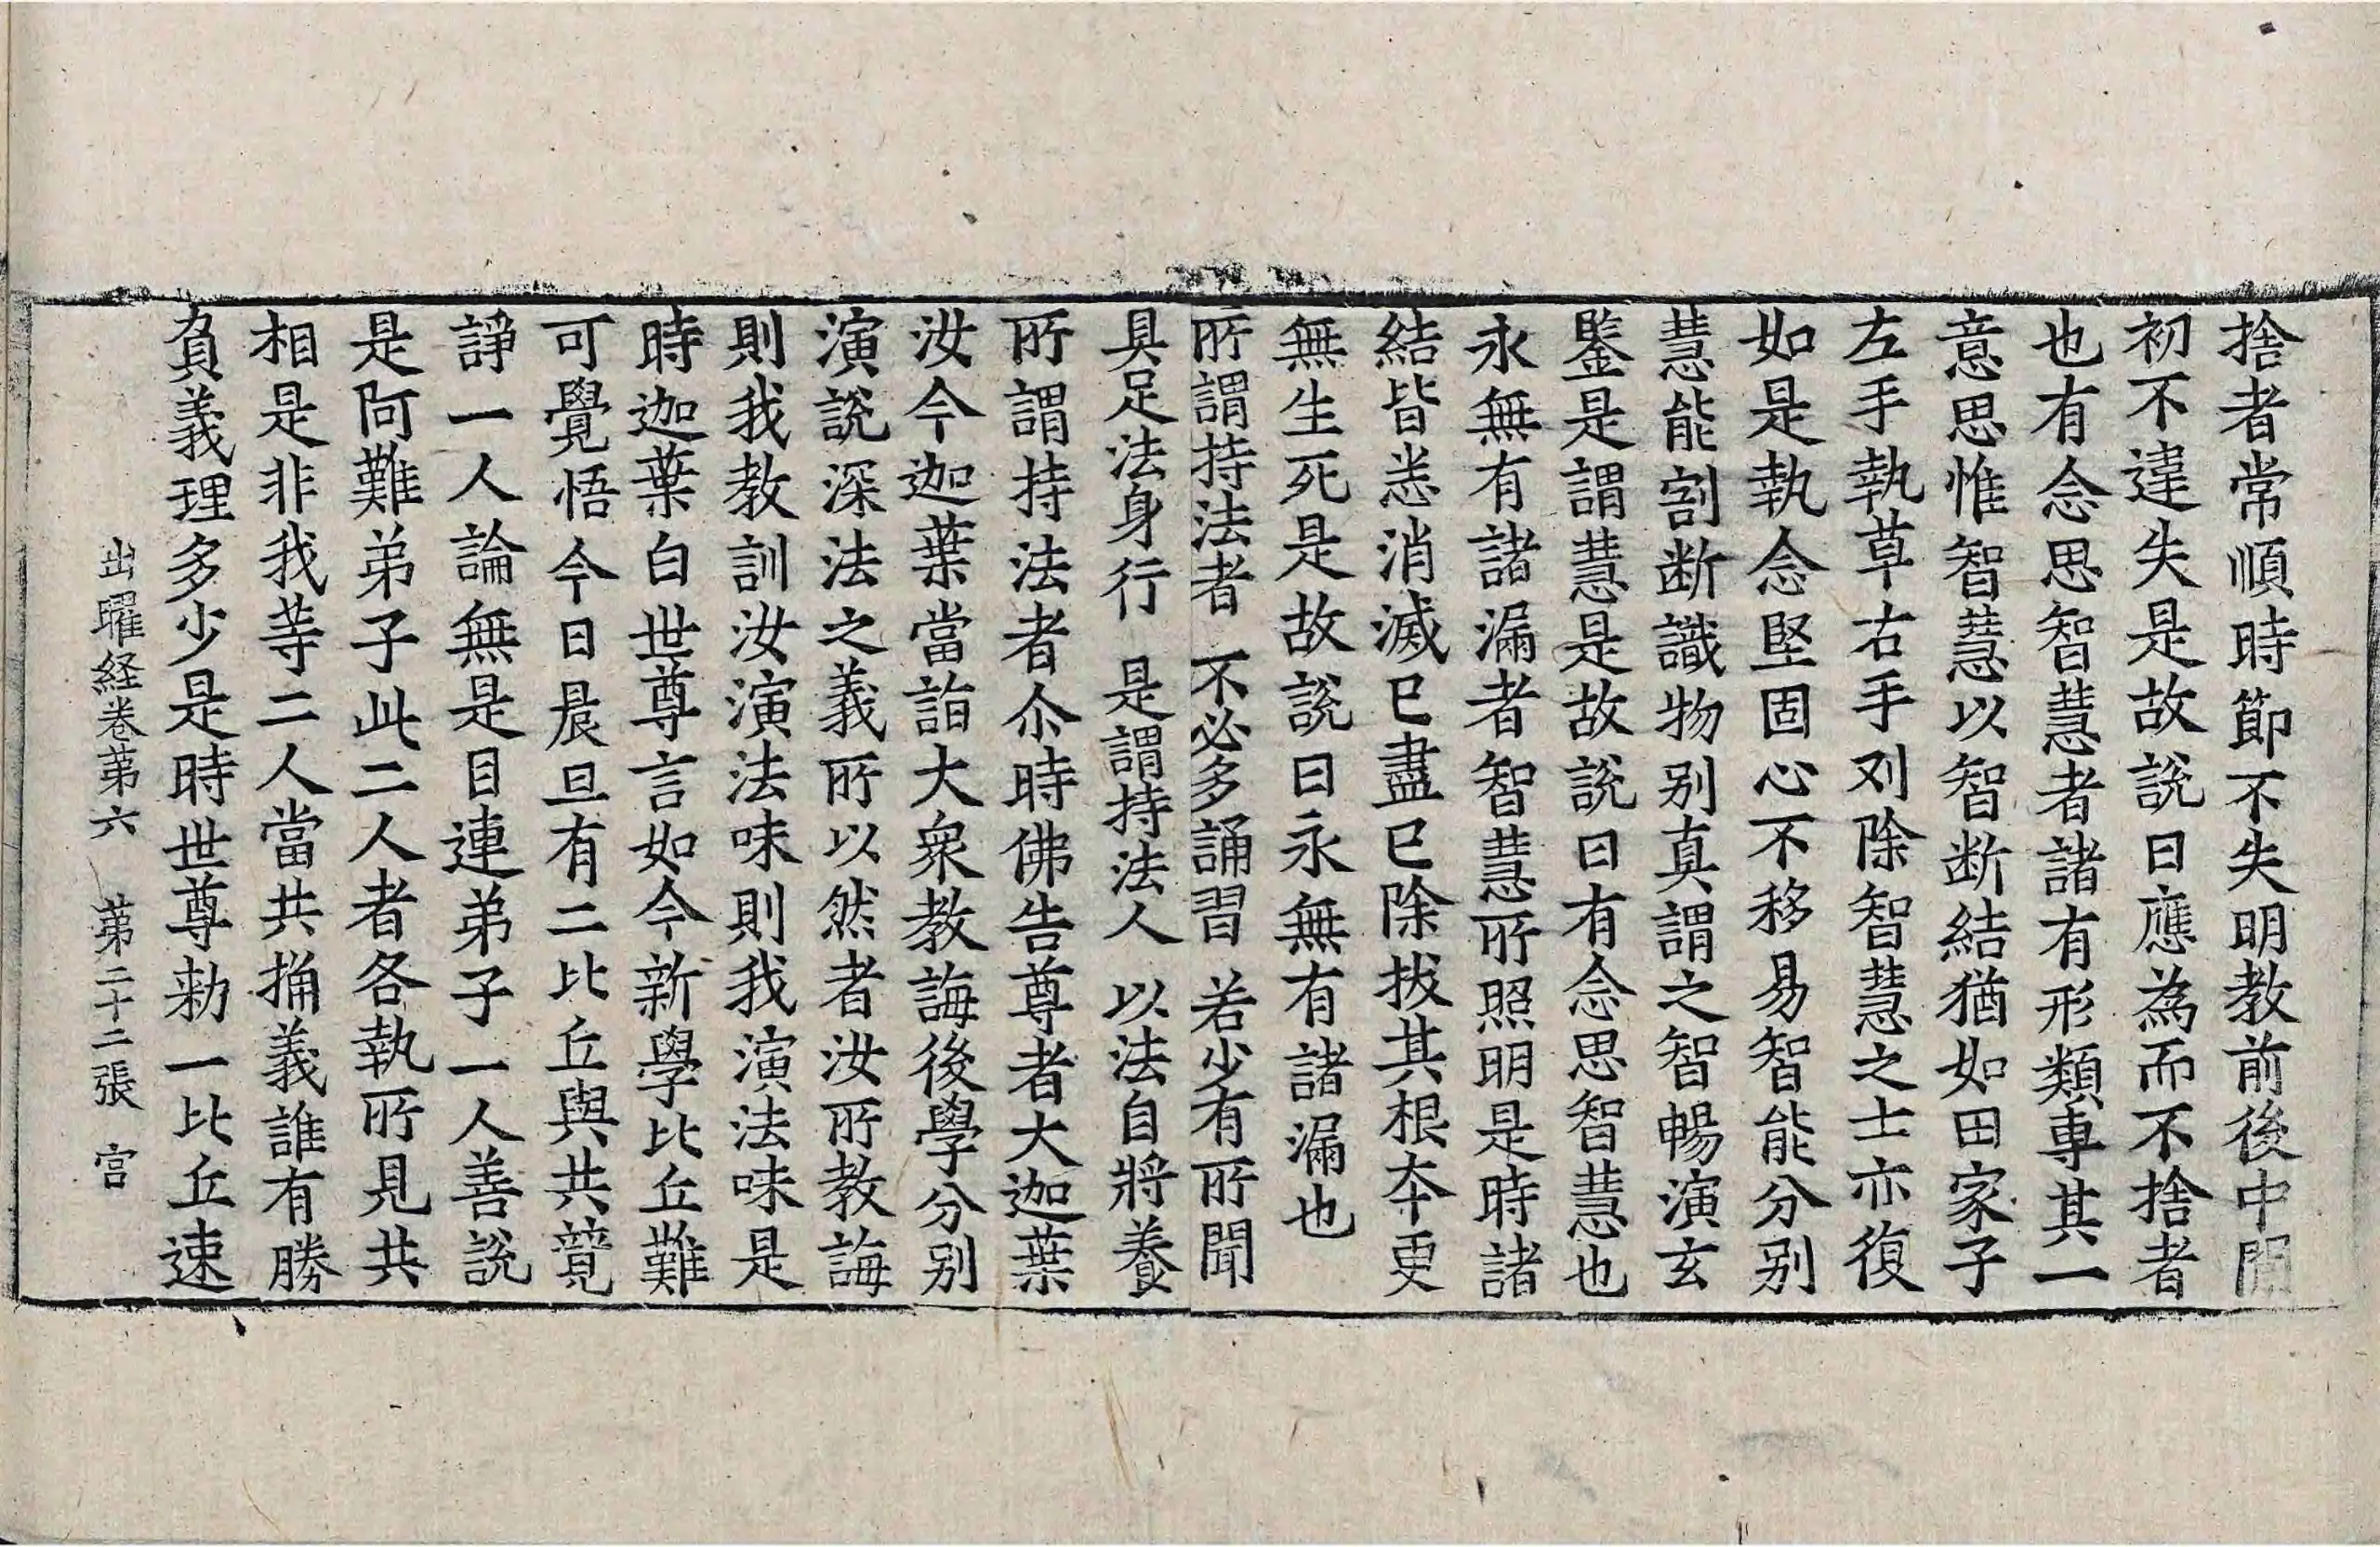 捨者常順時節不失明教前後中間
初不違失是故說曰應為而不捨者
也有念思智慧者諸有形類專其一
意思惟智慧以智断結猶如田家子
左手執草右手刈除智慧之士亦復
如是執念堅固心不移易智能分别
慧能割断識物别真謂之智暢演玄
鑒是謂慧是故說曰有念思智慧也
永無有諸漏者智慧所照明是時諸
結皆悉消滅已盡已除拔其根本更
無生死是故說曰永無有諸漏也
所謂持法者 不必多誦習 若少有所聞
具足法身行 是謂持法人 以法自將養
所謂持法者尒時佛告尊者大迦葉
汝今迦葉當詣大衆教誨後學分别
演說深法之義所以然者汝所教誨
則我教訓汝演法味則我演法味是
時迦葉白世尊言如今新學比丘難
可覺悟今日晨旦有二比丘與共競
諍一人論無是目連弟子一人善說
是阿難弟子此二人者各執所見共
相是非我等二人當共捔義誰有勝
負義理多少是時世尊勑一比丘速
出曜経卷苐六 苐二十二張 宫